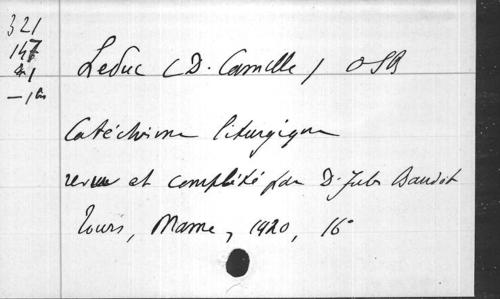 321
147
Leduc (D. Camille) OSB
Catéchisme liturgique
revu et complété par D. Jules Baudot
Tours, Mame, 1920, 16°